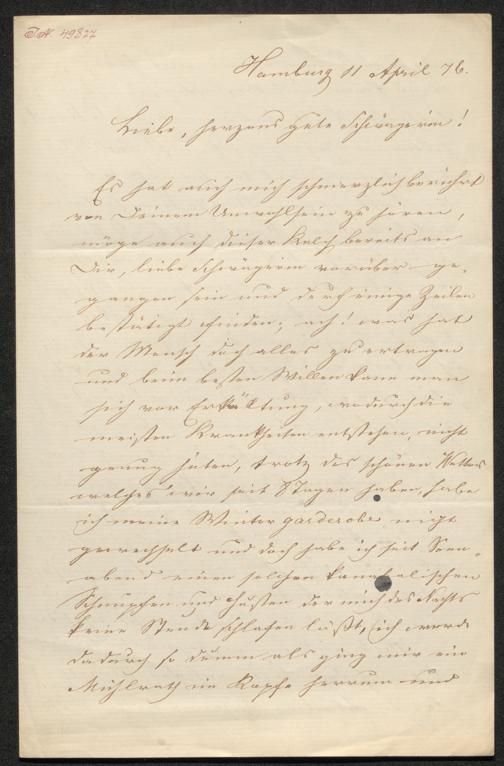 I.N. 49827
Hamburg 11 April 76.
Liebe, herzens gute Schwägerin!
Es hat auch mich schmerzlich berührt
von Deinem Unwohlsein zu hören,
möge auch dieser Kelch bereits an
Dir, liebe Schwägerin vorüber ge-
gangen sein und durch einige Zeilen
bestätigt finden; ach! was hat
der Mensch doch alles zu ertragen
und beim besten Willen kann man
sich vor Erkältung, wodurch die
meisten Krankheiten entstehen, nicht
genug hüten, trotz des schönen Wetters
welches wir seit 8 Tagen haben, habe
ich meine Winter garderobe nicht
gewechselt und doch habe ich seit Sonn-
abend einen solchen kannibalischen
Schnupfen und Husten der mich des Nachts
keine Stunde schlafen läßt, ich werde
dadurch so dumm als ging mir ein
Mühlrath im Kopfe herrum und